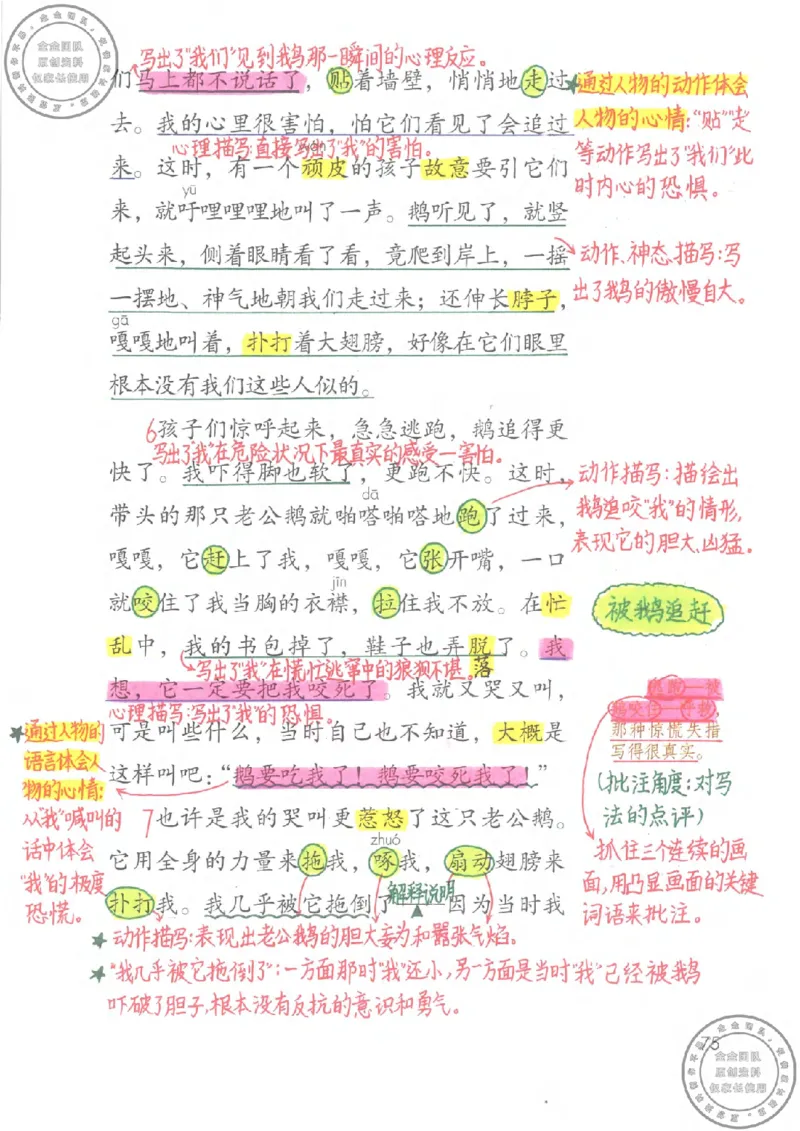 写出了“我们”见到我鹅那一瞬间的心理反应。
们马上都不说话了，贴着墙壁，悄悄地走过
去。我的心里很害怕，怕它们看见了会追过
心理描写直接写出了“我”的害怕。
来。这时，有一个顽皮的孩子故意要引它们
yū
来，就吁哩哩哩地叫了一声。鹅听见了，就竖
起头来，侧着眼睛看了看，竟爬到岸上，一摇
一摆地、神气地朝我们走过来；还伸长脖子，
gā
嘎嘎地叫着，扑打着大翅膀，好像在它们眼里
根本没有我们这些人似的。
★通过人物的动作体会
人物的心情：“贴”“走”
等动作写出了“我们”此
时内心的恐惧。
动作、神态描写：写
出了鹅的傲慢自大。
6孩子们惊呼起来，急急逃跑，鹅追得更
写出了“我”在危险状况下最真实的感受—害怕。
快了。我吓得脚也软了，更跑不快。这时，
dā
带头的那只老公鹅就啪嗒啪嗒地跑了过来，
嘎嘎，它赶上了我，嘎嘎，它张开嘴，一口
jīn
就咬住了我当胸的衣襟，拉住我不放。在忙
乱中，我的书包掉了，鞋子也弄脱了。我
落
写出了“我”在慌忙逃窜中的狼狈不堪。
想，它一定要把我咬死了。我就又哭又叫，
心理描写：写出了“我”的恐惧。
可是叫些什么，当时自己也不知道，大概是
这样叫吧：“鹅要吃我了！鹅要咬死我了！”
动作描写：描绘出
鹅追咬“我”的情形，
表现它的胆大、凶猛。
被鹅追赶
那种惊慌失措
写得很真实。
（批注角度：对写
法的点评）
抓住三个连续的画
面，用凸显画面的关键
词语来批注。
★通过人物的
语言体会人
物的心情：
从“我”喊叫的
话中体会
“我”的极度
恐慌。
7也许是我的哭叫更惹怒了这只老公鹅。
zhuó
它用全身的力量来拖我，啄我，扇动翅膀来
扑打我。我几乎被它拖倒了 因为当时我
解释说明
★动作描写：表现出老公鹅的胆大妄为和嚣张气焰。
★“我几乎被它拖倒了”：一方面那时“我”还小，另一方面是当时“我”已经被鹅
吓破了胆子，根本没有反抗的意识和勇气。
75